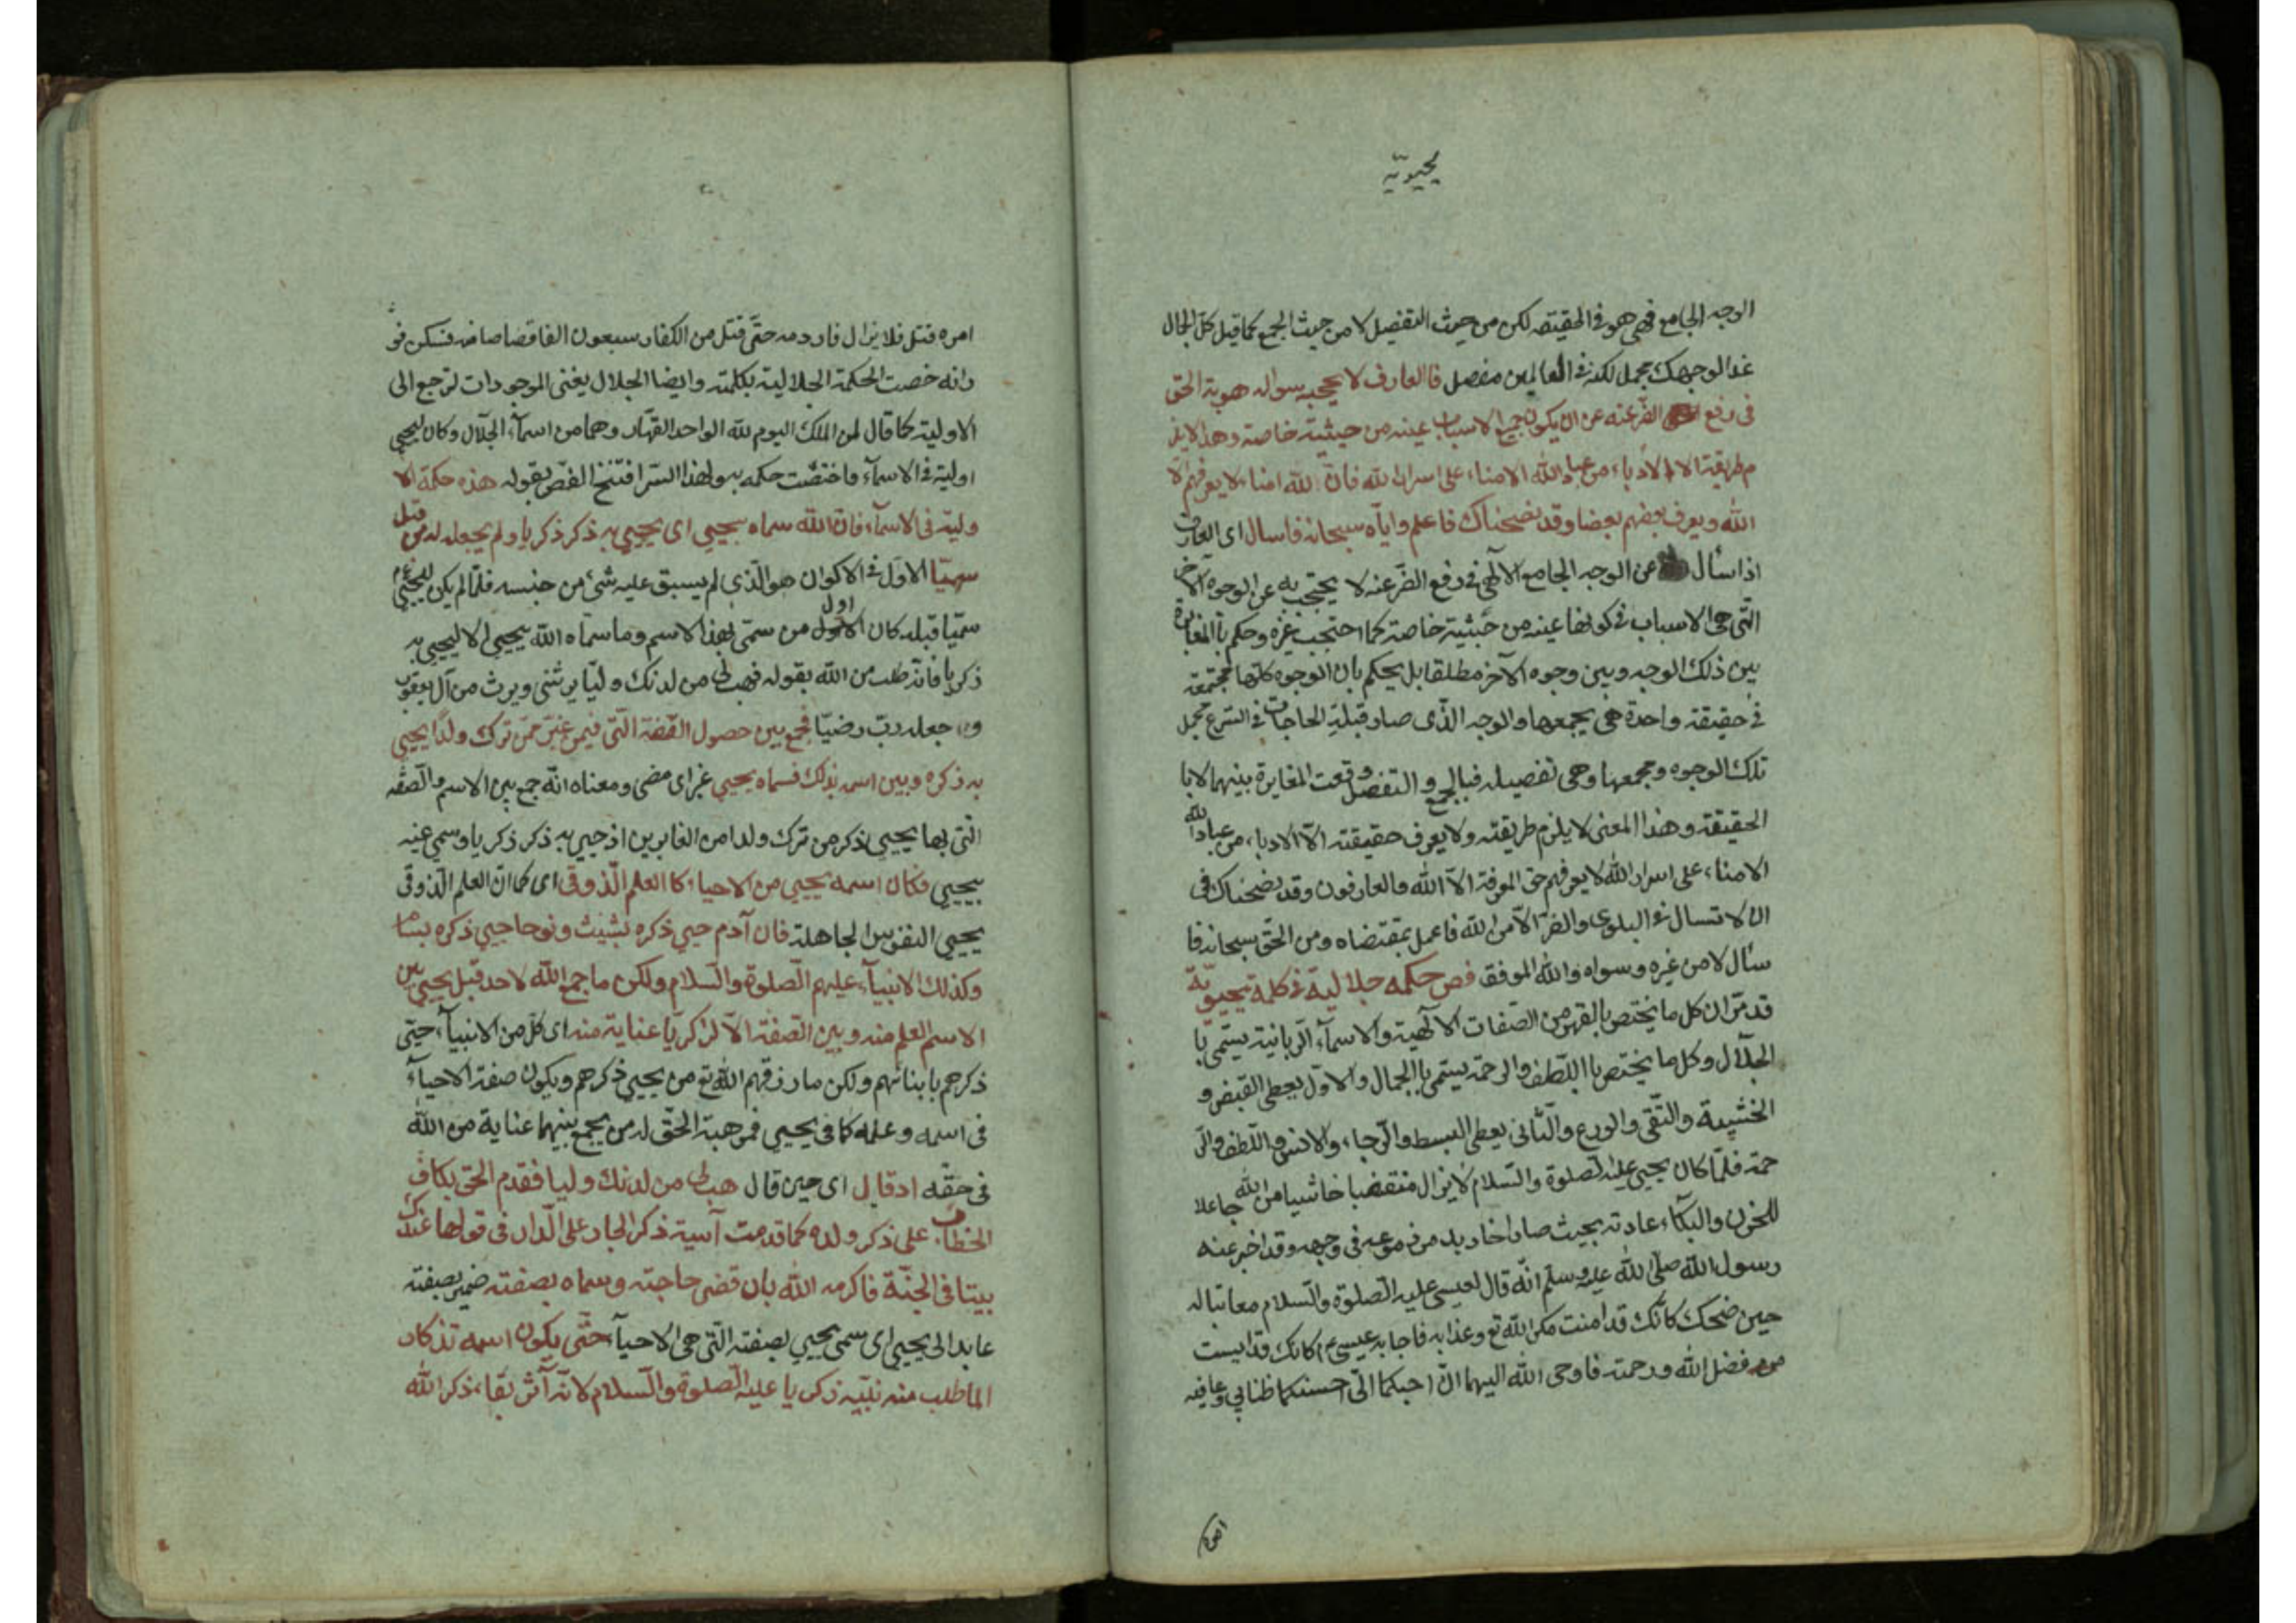 يحيويّة
الوجه الجامع فهى هو فى الحقيقه لكن من حيث التفصيل لا من حيث الجمع كما قيل كل الجمال
غدا لوجهك مجمل لكنه فى العالمين مفصل فالعارف لا يحجبه سواله هوية الحق
فى رفع الضّر عنه عن ان يكون جميع الاسباب عينه من حيثيّة خاصة وهذا لايلز
م طريقته الا الادباء من عباد الله الامناء على اسرار الله فان لله امناء لا يعرفهم الا
الله ويعرف بعضهم بعضا وقد نصحناك فاعلم واياه سبحانه فاسال اى العارف
اذا سأل عن الوجه الجامع الالٓهى فى رفع الضّر عنه لا يحتجب به عن الوجوه الاخر
الّتى هى الاسباب فى كونها عينه من حيثية خاصة كما احتجب غيره وحكم باالمغايرة
بين ذلك الوجه وبين وجوه الآخر مطلقا بل يحكم بان الوجوه كلّها مجتمعة
فى حقيقة واحدة هى يجمعها والوجه الذّى صار قبلة الحاجات فى الشرع مجمل
تلك الوجوه ومجمعها وهى تفصيله فباالجمع والتفصيل وقعت المغايرة بينهما لا با
الحقيقة وهذا المعنى لا يلزم طريقته ولا يعرف حقيقته الّا الادباء من عباد الله
الامناء على اسرار الله لا يعرفهم حق المعرفة الّا الله والعارفون وقد نصحناك فى
ان لا تسال فى البلوى والضّر الّا من الله فاعمل بمقتضاه ومن الحق سبحانه فا
سأل لا من غيره وسواه والله الموفق فص حكمه جلالية فى كلمة يحيويّة
قد مّر ان كل ما يختص باالقهر من الصّفات الالٓهية والاسمآء الرّبانية يسّمى با
الجلآل وكل ما يختص باالّلطف والرحمة يسّمى باالجمال والاوّل يعطى القبض و
الخشية والتّقى والورع والثّانى يعطى البسط والّرجاء والانس والّلطف والّر
حمة فلمّا كان يحيى عليه الصلوة والسّلام لا يزال منقبضا خاشيا من الله جاعلا
للحزن والبكآء عادته بحيث صار اخاديد من دموعه فى وجهه وقد اخبر عنه
رسول الله صلّى الله عليه وسلّم انّه قال لعيسى عليه الصّلوة والسّلام معاتبا له
حين ضحك كانّك قد امنت مكر الله تع وعذابه فاجابه عيسى ع م كانك قد ايست
من فضل الله ورحمته فاوحى الله اليهما انّ احبكما الّى احسنكما ظنا بى وعاقبة
امره
امره قتل فلا يزال فار دمه حتّى قتل من الكفار سبعون الفا قصاصا منه فسكن فو
رانه خصت الحكمة الجلالية بكلمته وايضا الجلال يغنى الموجودات لترجع الى
الاولية كما قال لمن الملك اليوم لله الواحد القهّار وهما من اسمآء الجلال وكان ليحيى
اولية فى الاسمآء فاختصّت حكمه به ولهذا السّر افتتح الفصّ بقوله هذه حكمة الا
ولية فى الاسمآء فان الله سماه بيحيى اى يحيى به ذكر ذكريا ولم يجعل له من قبل
سميّا الاوّل فى الاكوان هو الّذى لم يسبق عليه شئ من جنسه فلمّا لم يكن ليحيى ع م
سميّا قبله كان الاوّل اول من سمّى بهذا الاسم وما سمّاه الله بيحيى الا ليحيى به
ذكريا فانّه طلب من الله بقوله فهب لى من لدنك وليّا يرثنى ويرث من آل يعقوب
واجعله ربّ رضيّا فجمع بين حصول الصّفة الّتى فيمن غبر ممّن ترك ولدًا يحيى
به ذكره وبين اسمه بذلك فسماه يحيى غبر اى مضى ومعناه انّه جمع بين الاسم والّصفه
الّتى بها يحيى ذكر من ترك ولدا من الغابرين اذ حيى به ذكر ذكريا وسمى عينه
بيحيى فكان اسمه يحيى من الاحياء كا العلم الّذوقى اى كما انّ العلم الّذوقى
يحيى النفوس الجاهلة فان آدم حيى ذكره بشيث ونوحا حيى ذكره بسام
وكذلك الانبيآء عليهم الصّلوة والسّلام ولكن ما جمع الله لاحد قبل يحيى بين
الاسم العلم منه وبين الصّفة الّا لزكريّا عناية منه اى كل من الانبيآء حيّى
ذكرهم بابنائهم ولكن ما رزقهم الله تع من يحيى ذكرهم ويكون صفة الاحيآء
فى اسمه وعلمه كما فى يحيى فمن هبة الحقّ له من يجمع بينهما عناية من الله
فى حقّه اذ قال اى حين قال هب لى من لدنك وليا فقدم الحق بكاف
الخطاب على ذكر ولده كما قدمت آسية ذكر الجار على الّدار فى قولها عندك
بيتا فى الجنّة فاكرمه الله بان قضى حاجته وسماه بصفته ضمير بصفته
عايد الى يحيى اى سمى يحيى بصفته الّتى هى الاحيآء حتّى يكون اسمه تذكار
الما طلب منه نبّيه زكريا عليه الصّلوة والسّلام لانّه آثر بقاء ذكر الله